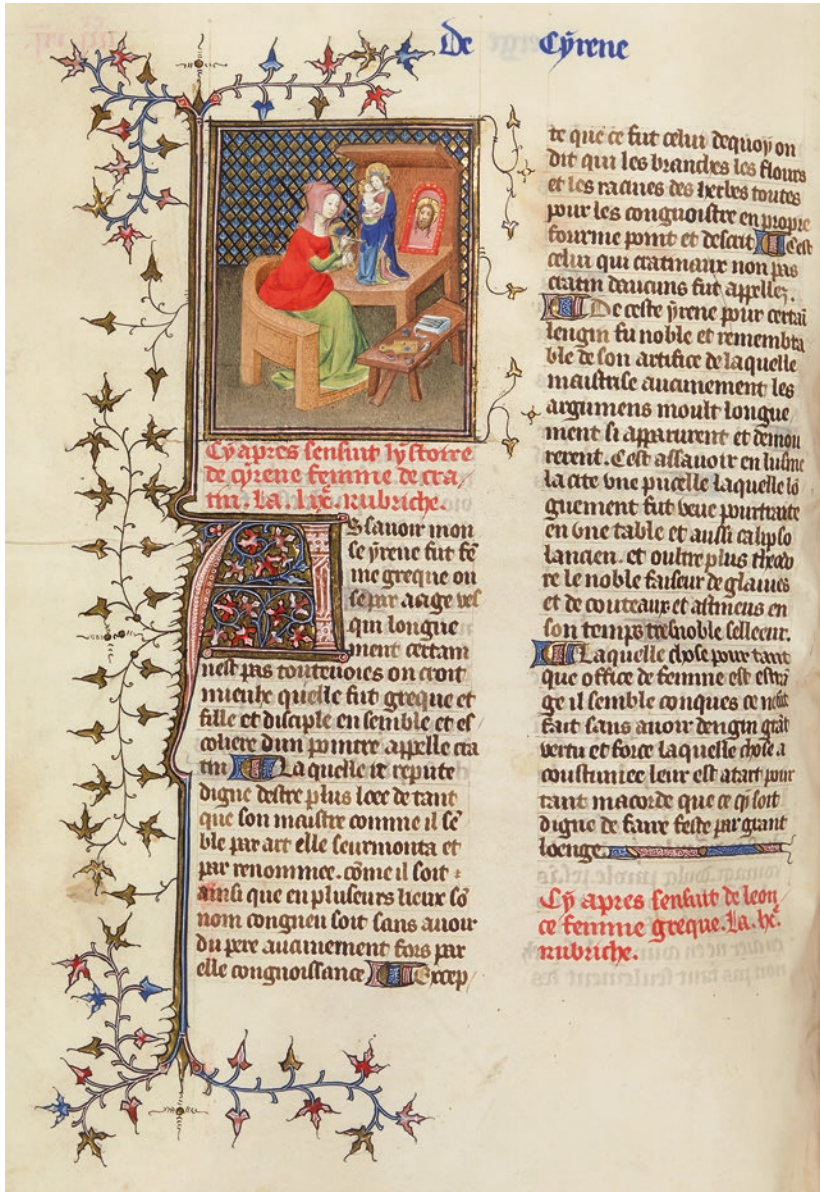 De Cyrene
Cy apres sensuit lystoire
de cyrene femme de cra/
tin. La. lixe. rubriche.
Assavoir mon
se yrene fut fē
me greque ou
se par aage
qui longue
ment certain
nest pas toutevoies on croit
mieulx quelle fut greque et
fille et disciple ensemble et es/
coliere dun peintre appelle cra
tin La quelle ie repute
digne destre plus loee de tant
que son maistre comme il sē
ble par art elle seurmonta et
par renommee. cōme il soit
ainsi que en pluseurs lieux sō
nom congneu soit sans avoir
du pere aucunement fors par
elle congnoissance Excep/
te que ce fut celui dequoy on
dit qui les branches les flours
et les racines des herbes toutes
pour les congnoistre en propre
fourme point et descrit Cest
celui qui cratinaux non pas
cratin daucuns fut appellez.
De ceste yrene pour certaī
lengin fu noble et remembra
ble de son artifice de laquelle
maistrise aucunement les
argumens moult longue
ment si apparurent et demou
rerent. Cest assavoir en lusine
la cite une pucelle laquelle lō
guement fut veue pourtraite
en une table et aussi calipso
lancien. et oultre plus theodo
re le noble faiseur de glaives
et de couteaux et astineus en
son temps tresnoble selleeur.
Laquelle chose pour tant
que office de femme est estrā
ge il semble conques ce
fait sans avoir dengin grāt
vertu et force laquelle chose a
coustumee leur est atart pour
tant macorde que ce cy soit
digne de faire feste par grant
loenge.
Cy apres sensuit de leon
ce femme greque. La. lxe.
rubriche.